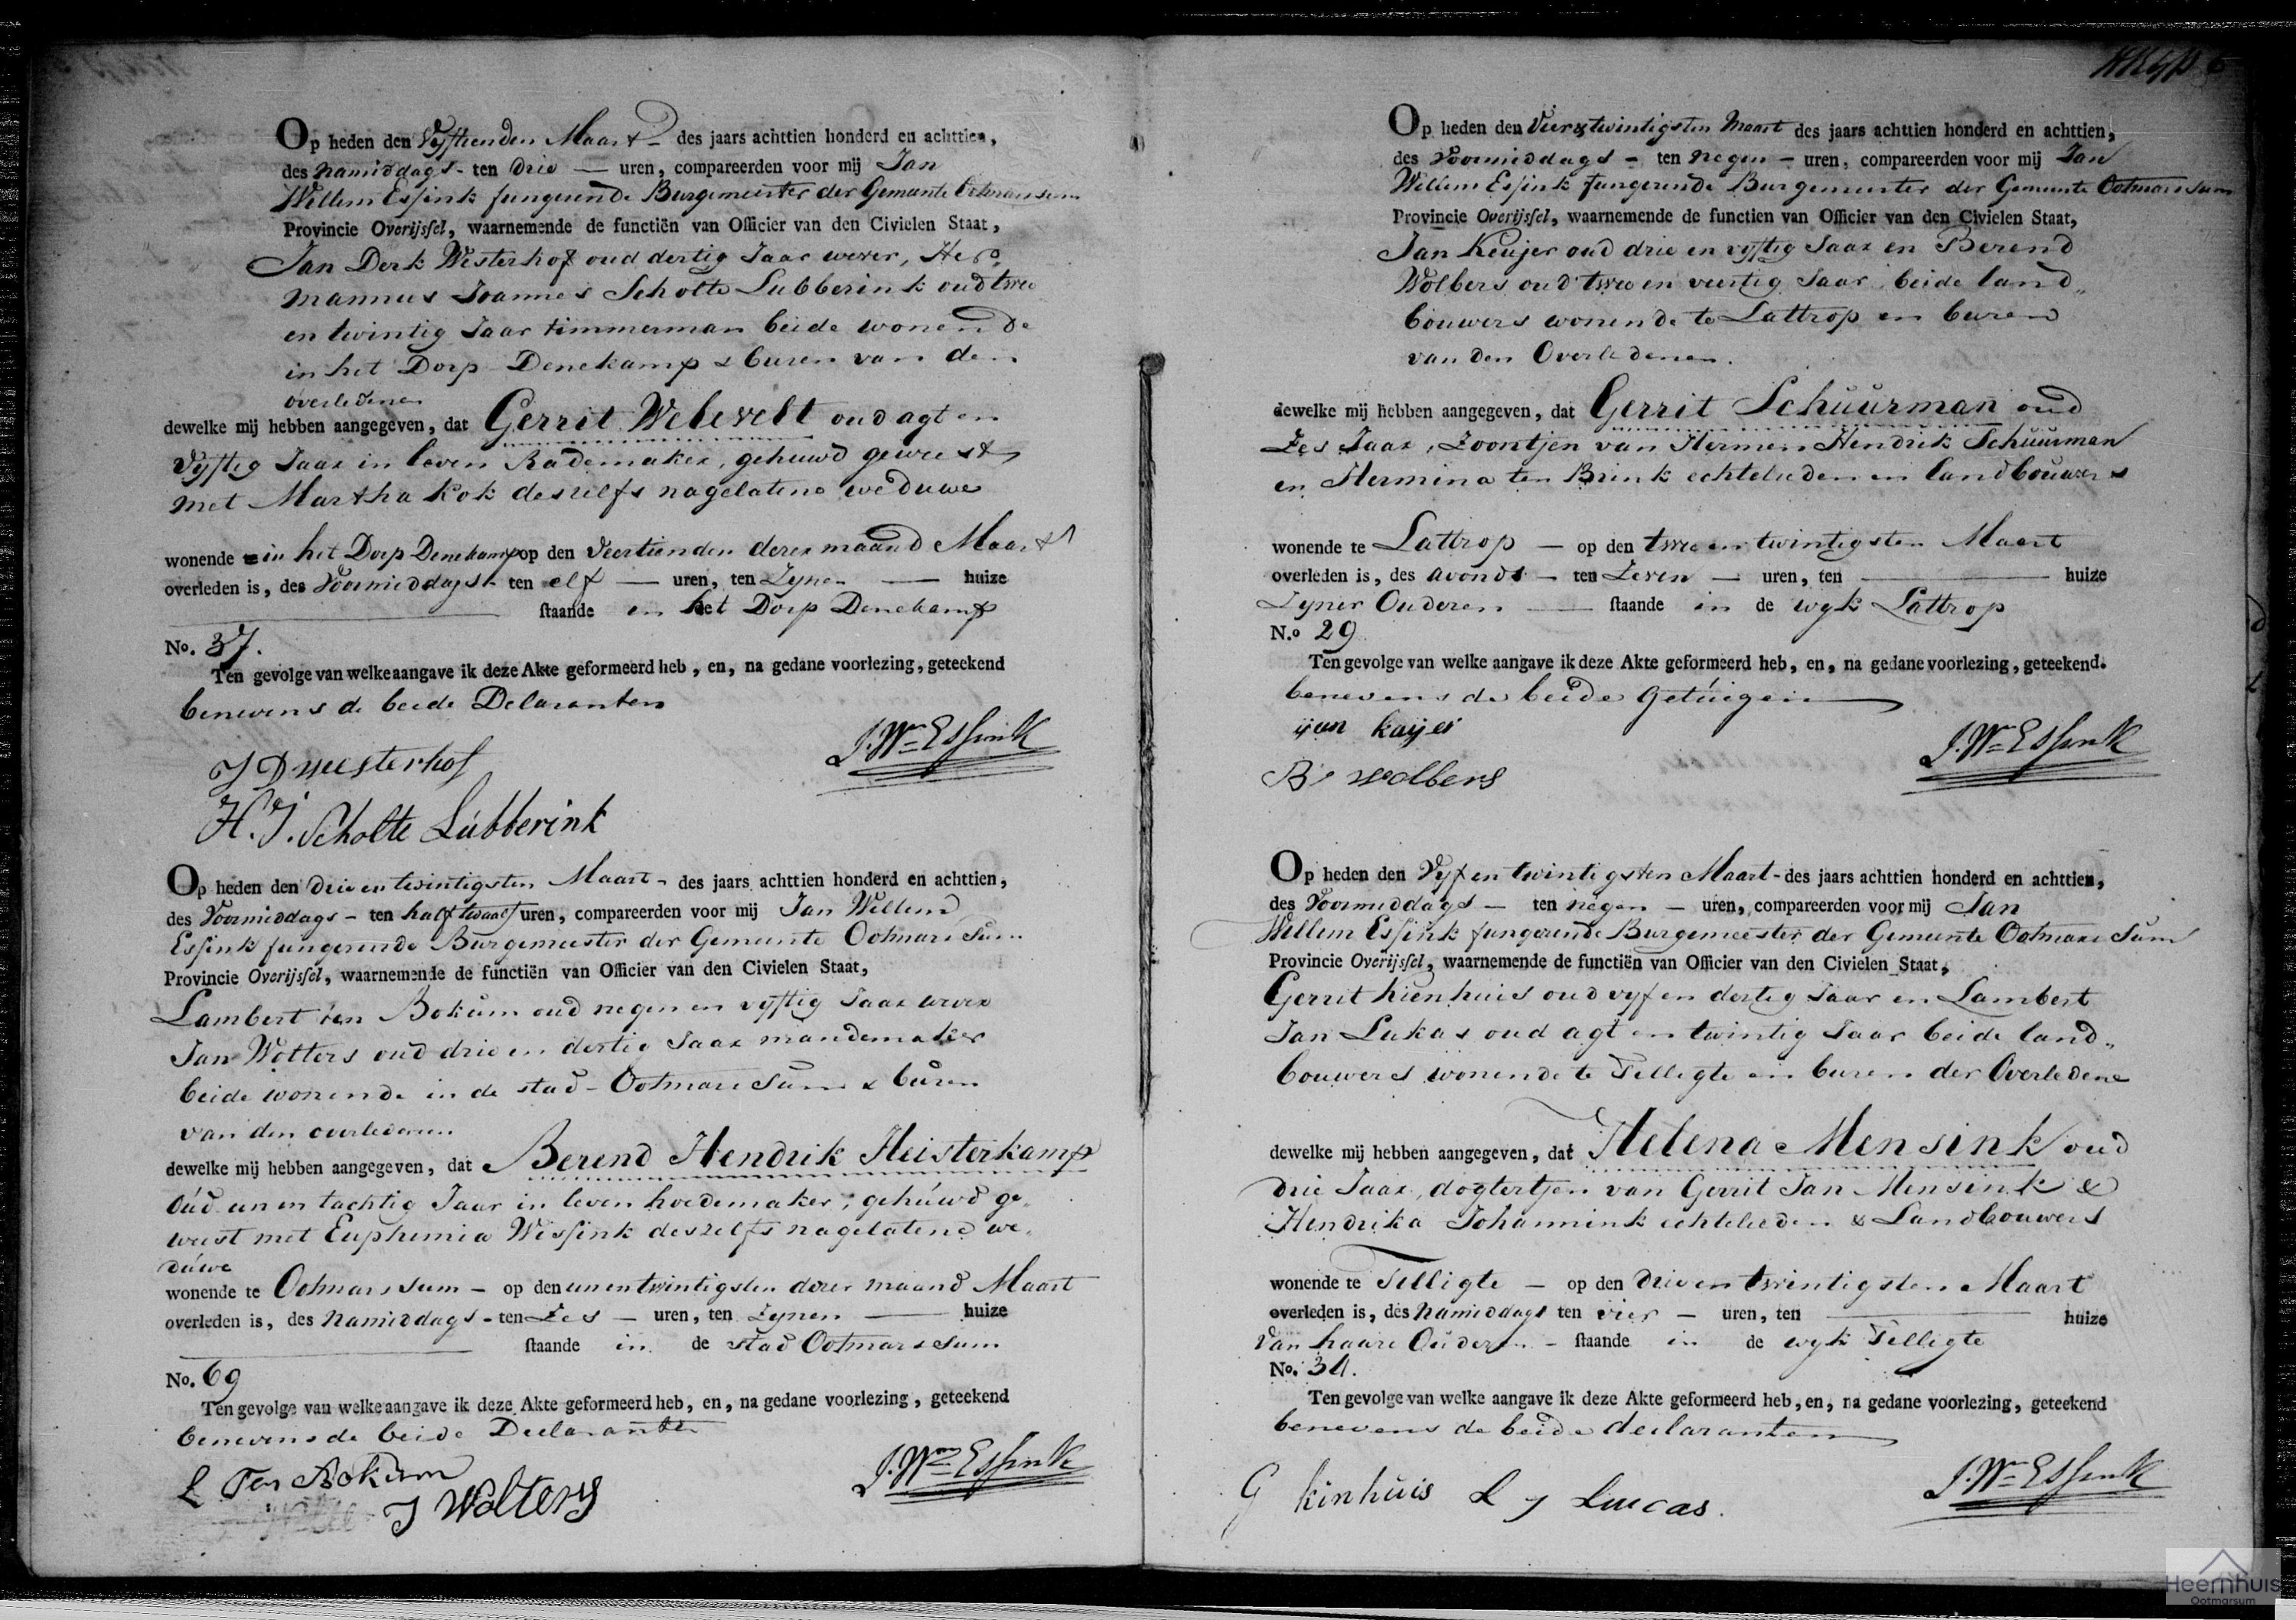 Op heden den Vyftienden Maart des jaars achttien honderd en achttien,
des Namiddags - ten drie — uren, compareerden voor mij Jan
Willem Essink fungerende Burgemeester der Gemeente Ootmarssum
Provincie Overijssel, waarnemende de functiën van Officier van den Civielen Staat,
Jan Derk Westerhof oud dertig Jaar wever, Her„
mannus Joannes Scholte Lubberink oud twee
en twintig Jaar timmerman beide wonende
in het Dorp Denekamp & buren van den
overledenen
dewelke mij hebben aangegeven, dat Gerrit Welevelt oud agt en
vyftig Jaar in leven Rademaker, gehuwd geweest
met Martha Kok deszelfs nagelatene weduwe
wonende in het Dorp Denekamp op den veertienden dezer maand Maart
overleden is, des Voormiddags - ten elf — uren, ten Zynen — huize
staande in het Dorp Denekamp
No. 37.
Ten gevolge van welke aangave ik deze Akte geformeerd heb, en, na gedane voorlezing, geteekend
benevens de beide Delaranten
J. Wm Essink
J D westerhof
H. J. Scholte Lubberink
Op heden den drie en twintigsten Maart - des jaars achttien honderd en achttien,
des Voormiddags - ten half twaalf uren, compareerden voor mij Jan Willem
Essink fungerende Burgemeester der Gemeente Ootmarssum
Provincie Overijssel, waarnemende de functiën van Officier van den Civielen Staat,
Lambert ten Bokum oud negen en vyftig Jaar wever
Jan Wolters oud drie en dertig Jaar mandemaker
beide wonende in de stad Ootmarssum & buren
van den overledenen
dewelke mij hebben aangegeven, dat Berend Hendrik Heisterkamp
oud een en tachtig Jaar in leven hoedemaker, gehuwd ge„
weest met Euphemia Wissink deszelfs nagelatene we„
duwe
wonende te Ootmarssum - op den een en twintigsten dezer maand Maart
overleden is, des Namiddags - ten Zes — uren, ten Zynen — huize
staande in de stad Ootmarssum
No. 69
Ten gevolge van welke aangave ik deze Akte geformeerd heb, en, na gedane voorlezing, geteekend
benevens de beide Declaranten
J. Wm Essink
L Ten Bokum
J Wolters
Op heden den Vier & twintigsten Maart des jaars achttien honderd en achttien,
des Voormiddags - ten negen - uren, compareerden voor mij Jan
Willem Essink fungerende Burgemeester der Gemeente Ootmarssum
Provincie Overijssel, waarnemende de functien van Officier van den Civielen Staat,
Jan Keujer oud drie en vyftig Jaar en Berend
Wolbers oud twee en veertig Jaar beide land„
bouwers wonende te Lattrop en buren
van den Overledenen.
dewelke mij hebben aangegeven, dat Gerrit Schuurman oud
Zes Jaar, Zoontjen van Hermen Hendrik Schuurman
en Hermina ten Brink echtelieden en landbouwers
wonende te Lattrop — op den twee en twintigsten Maart
overleden is, des avonds - ten Zeven - uren, ten — huize
Zyner Ouderen — staande in de wyk Lattrop
N.o 29
Ten gevolge van welke aangave ik deze Akte geformeerd heb, en, na gedane voorlezing, geteekend.
benevens de beide getuigen
ijan kaijer
J. Wm Essink
B wolbers
Op heden den Vyf en twintigsten Maart - des jaars achttien honderd en achttien,
des Voormiddags - ten negen - uren, compareerden voor mij Jan
Willem Essink fungerende Burgemeester der Gemeente Ootmarssum
Provincie Overijssel, waarnemende de functiën van Officier van den Civielen Staat,
Gerrit Kienhuis oud vyf en dertig Jaar en Lambert
Jan Lukas oud agt en twintig Jaar beide land„
bouwers wonende te Tilligte en buren der Overledene
dewelke mij hebben aangegeven, dat Helena Mensink oud
drie Jaar, dogtertjen van Gerrit Jan Mensink &
Hendrika Johannink echtelieden & Landbouwers
wonende te Tilligte — op den drie en twintigsten Maart
overleden is, des Namiddags ten vier - uren, ten — huize
van haare Ouderen - staande in de wyk Tilligte
No. 34.
Ten gevolge van welke aangave ik deze Akte geformeerd heb, en, na gedane voorlezing, geteekend
benevens de beide declaranten
J. Wm Essink
G kinhuis L J Lucas.
Heernhuis
Ootmarsum